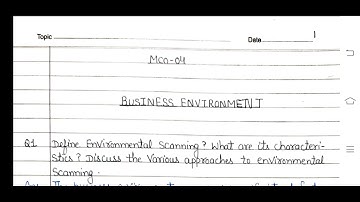 Topic
Date
1
MCO-04
BUSINESS ENVIRONMENT
Q1 Define Environmental Scanning? What are its characteri-
stics? Discuss the various approaches to environmental
Scanning.